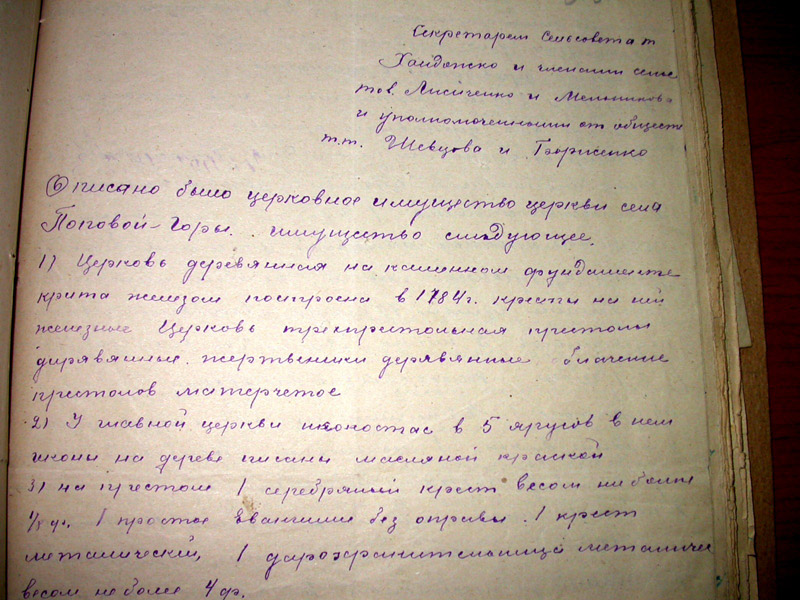 Секретарем Сельсовета т
и членами сель
тов. Лисиченко и Мельникова
и уполномоченными от обществ
т.т. Шевцова и Борисенко
Описано было церковное имущество церкви села
Поповой-Горы. имущество следующее.
1) Церковь деревянная на каменном фундаменте
крита железом построена в 1784г. кресты на ней
железные Церковь трепрестольная престолы
дирявянные жертвеники дерявянные облачение
престолов матерчетое
2) У главной церкви иконостас в 5 яругов в нем
иконы на дереве писаны масляной краской
3) на престоле 1 серебряный крест весом не более
1 простое Евангилие без оправы. 1 крест
металический, 1 дарохранительница металиче
весом не более 4 ф.